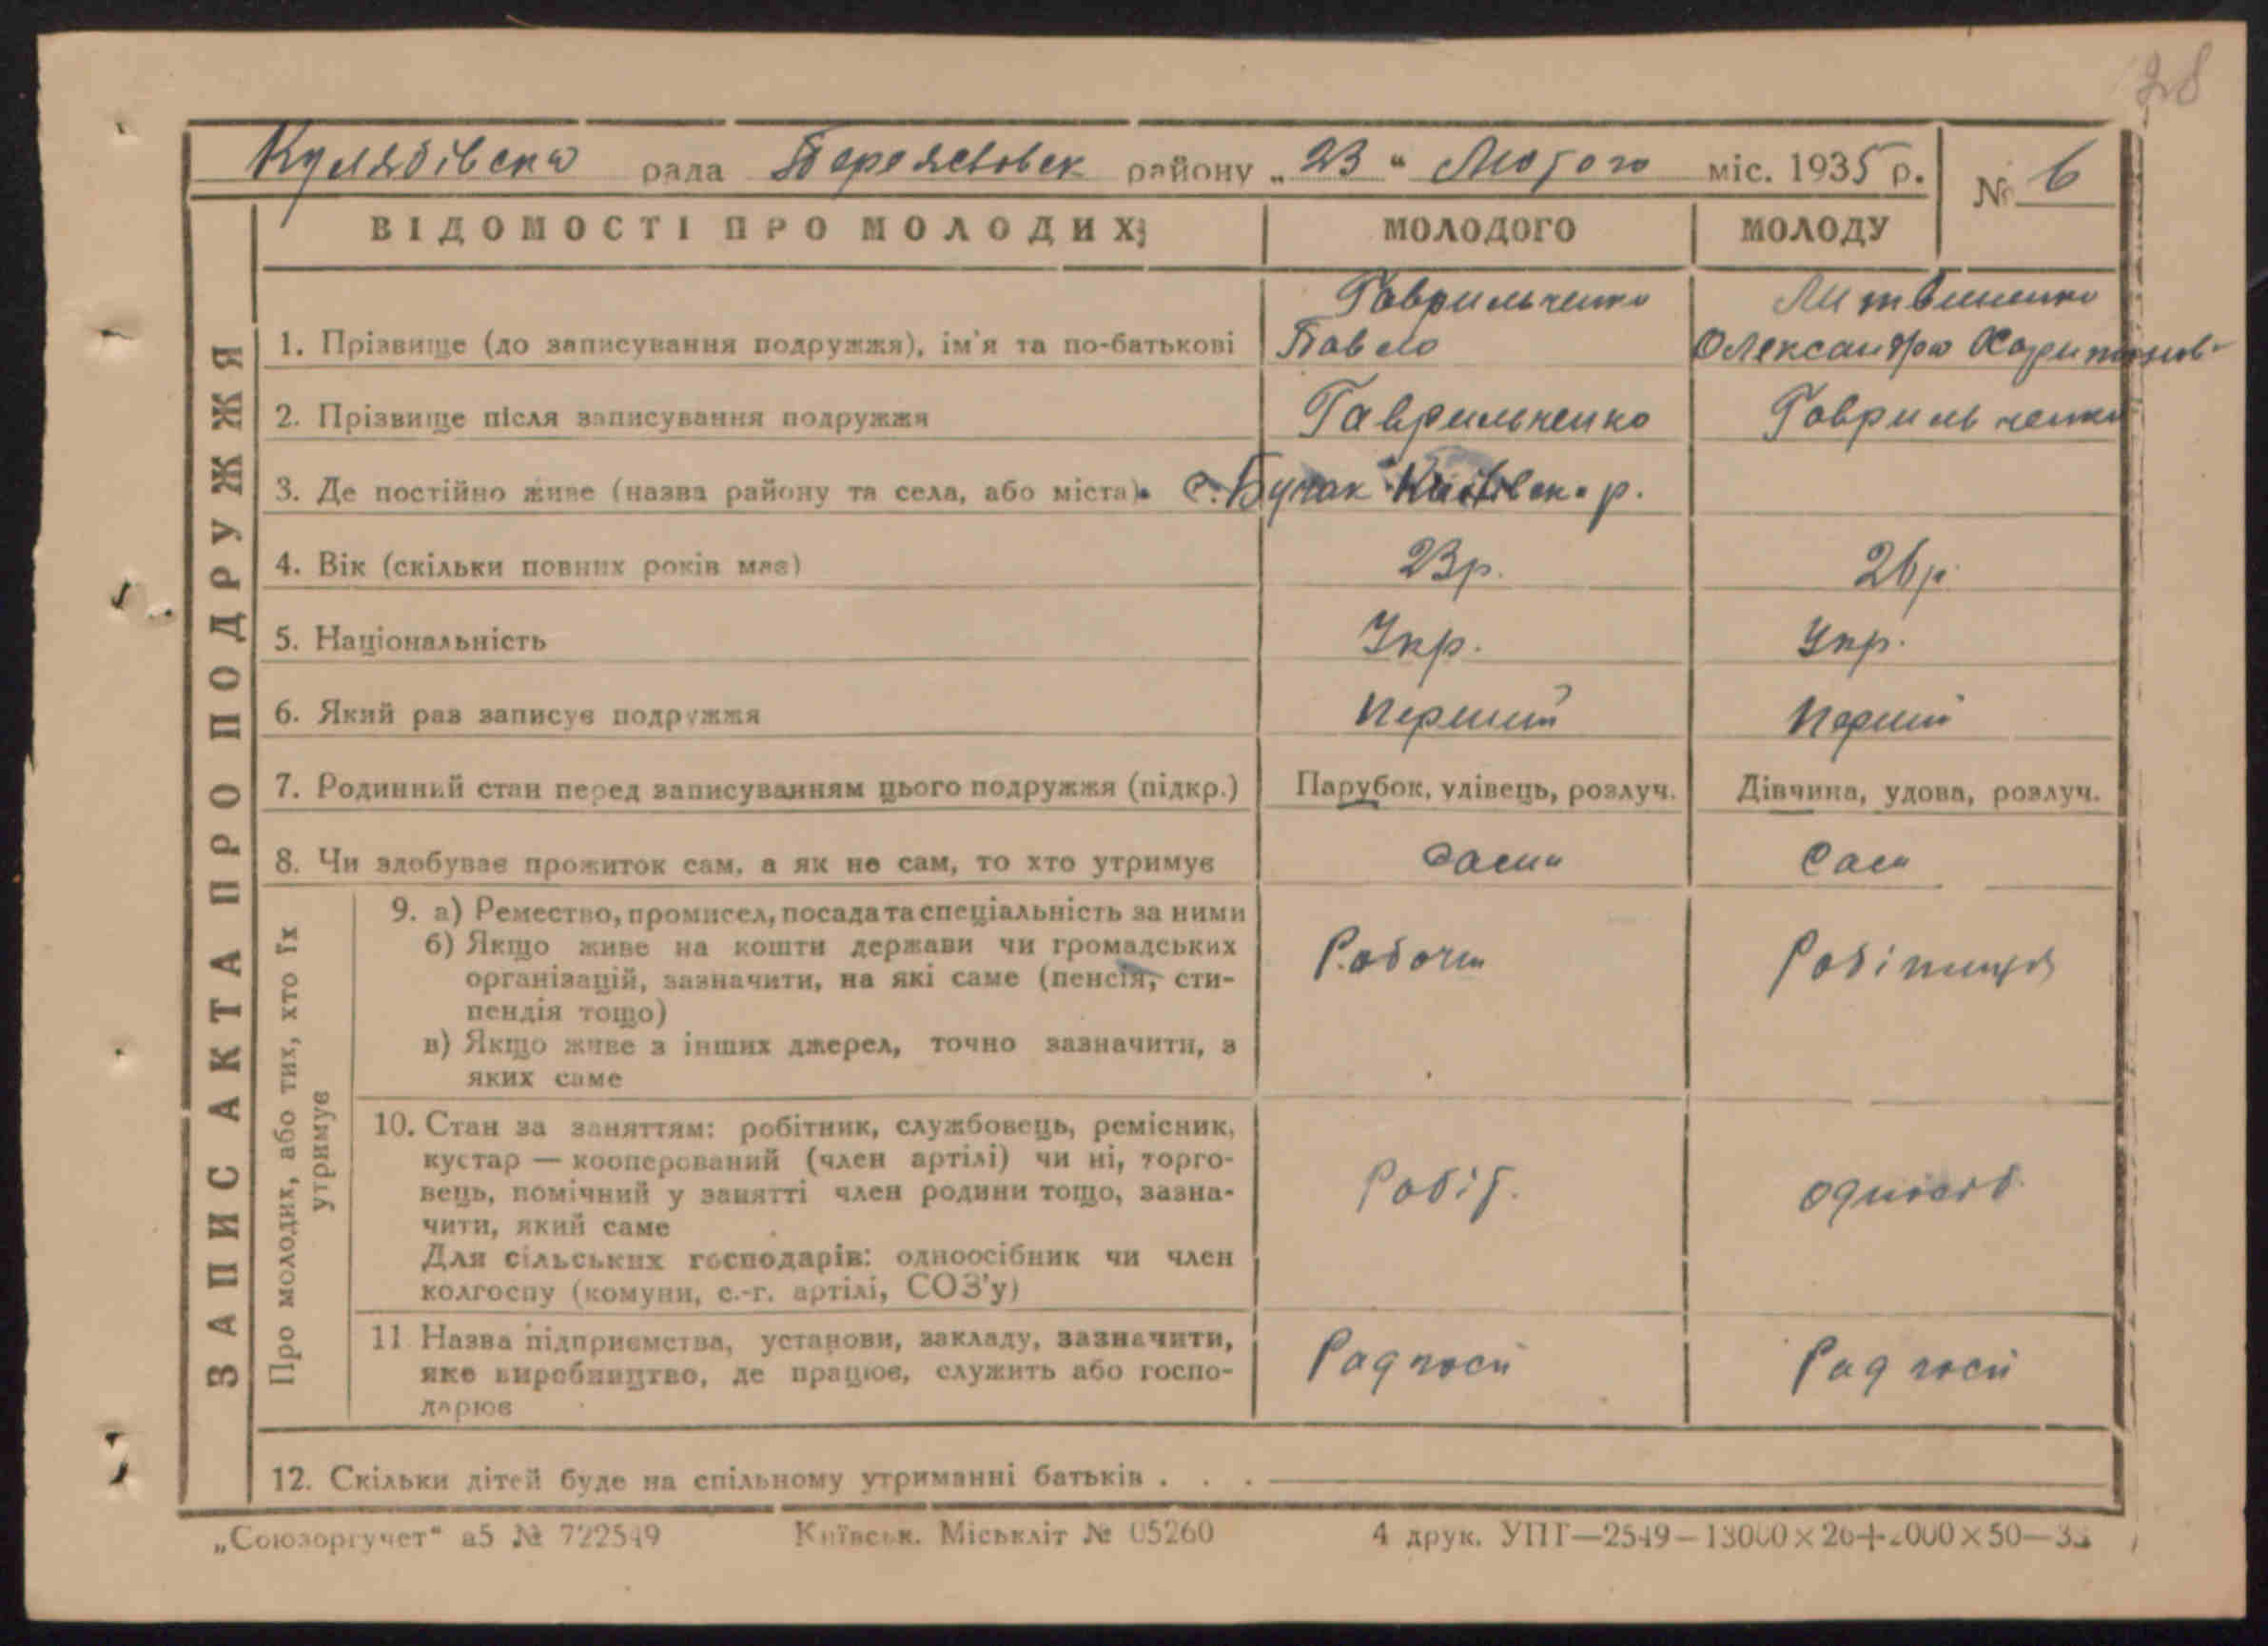 28
Кулябівська рада Переяславськ району „23“ Лютого міс. 1935 р. № 6
ВІДОМОСТІ ПРО МОЛОДИХ: МОЛОДОГО МОЛОДУ
Гаврильченко Литвиненко
1. Прізвище (до записування подружжя), ім'я та по-батькові Павло Олександра Харитонов-
2. Прізвище після записування подружжя Гаврильченко Гаврильченко
3. Де постійно живе (назва району та села, або міста). с. Бучак р.
4. Вік (скільки повних років має) 23р. 26р.
5. Національність Укр. Укр.
6. Який раз записує подружжя Перший Перший
7. Родинний стан перед записуванням цього подружжя (підкр.) Парубок, удівець, розлуч. Дівчина, удова, розлуч.
8. Чи здобуває прожиток сам, а як не сам, то хто утримує Сама
9. а) Ремество, промисел, посада та спеціальність за ними
б) Якщо живе на кошти держави чи громадських Робочий Робітниця
організацій, зазначити, на які саме (пенсія, сти-
пендія тощо)
в) Якщо живе з інших джерел, точно зазначити, з
яких саме
10. Стан за заняттям: робітник, службовець, ремісник,
кустар — кооперований (член артілі) чи ні, торго-
вець, помічний у занятті член родини тощо, зазна- Робіт.
чити, який саме
Для сільських господарів: одноосібник чи член
колгоспу (комуни, с.-г. артілі, СОЗ'у)
11 Назва підприємства, установи, закладу, зазначити,
яке виробництво, де працює, служить або госпо- Радгосп Радгосп
дарює
12. Скільки дітей буде на спільному утриманні батьків . . .
ЗАПИС АКТА ПРО ПОДРУЖЖЯ
Про молодих, або тих, хто їх
утримує
„Союзоргучет“ а5 № 722549 Київськ. Міськліт № 05260 4 друк. УПТ—2549—13000×26+2000×50—33